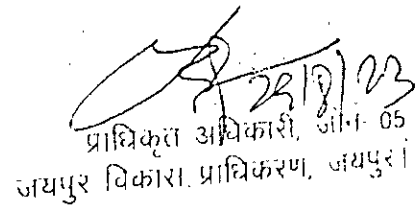 29/8/23
प्राधिकृत अधिकारी, जोन- 05
जयपुर विकास प्राधिकरण, जयपुर।